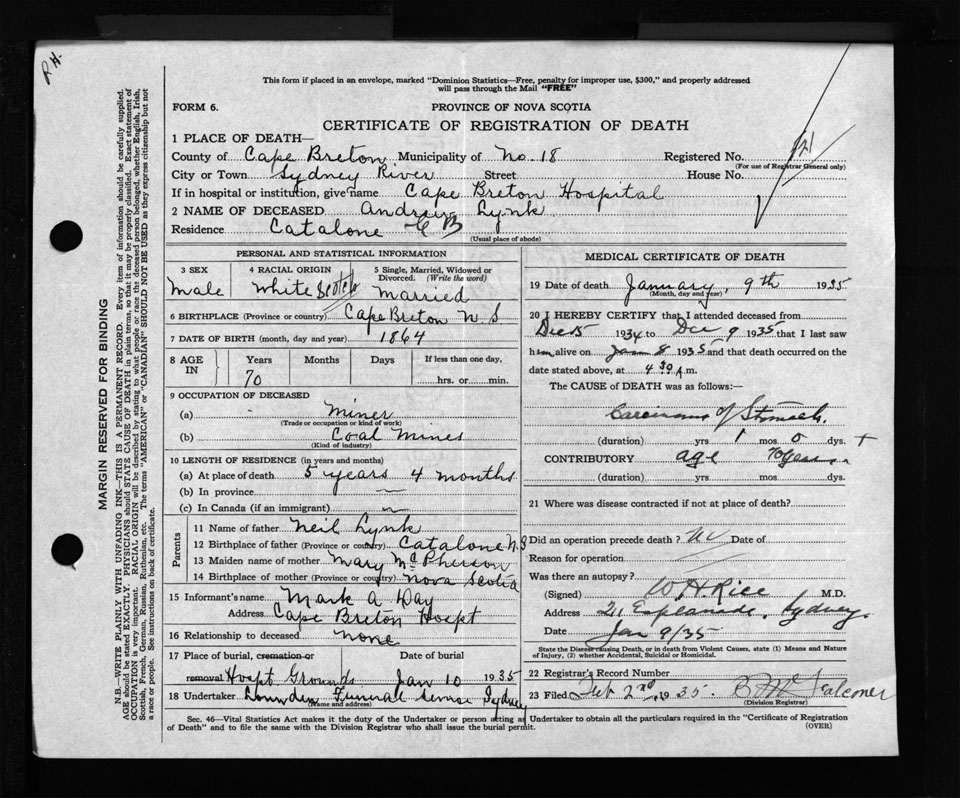 P.H.
This form if placed in an envelope, marked "Dominion Statistics—Free, penalty for improper use, $300," and properly addressed
will pass through the Mail "FREE"
FORM 6.
PROVINCE OF NOVA SCOTIA
CERTIFICATE OF REGISTRATION OF DEATH
1 PLACE OF DEATH—
County of Cape Breton Municipality of No. 18 Registered No.
(For use of Registrar General only)
City or Town Sydney River Street House No.
If in hospital or institution, give name Cape Breton Hospital
2 NAME OF DECEASED Andrew Lynk
Residence Catalone C B
(Usual place of abode)
PERSONAL AND STATISTICAL INFORMATION
3 SEX 4 RACIAL ORIGIN 5 Single, Married, Widowed or
Divorced. (Write the word)
Male White Scotch Married
6 BIRTHPLACE (Province or country) Cape Breton N.S
7 DATE OF BIRTH (month, day and year) 1864
8 AGE IN Years Months Days If less than one day,
70 hrs. or min.
9 OCCUPATION OF DECEASED
(a) Miner
(Trade or occupation or kind of work)
(b) Coal Mines
(Kind of industry)
10 LENGTH OF RESIDENCE (in years and months)
(a) At place of death 5 years 4 months
(b) In province —
(c) In Canada (if an immigrant) —
Parents
11 Name of father Neil Lynk
12 Birthplace of father (Province or country) Catalone N.S
13 Maiden name of mother Mary McPherson
14 Birthplace of mother (Province or country) Nova Scotia
15 Informant's name Mark A Day
Address Cape Breton Hospt
16 Relationship to deceased none
17 Place of burial, cremation or Date of burial
removal Hospt Grounds Jan 10 1935
18 Undertaker Funeral Sydney
(Name and address)
MEDICAL CERTIFICATE OF DEATH
19 Date of death January, 9th 1935
(Month, day and year)
20 I HEREBY CERTIFY that I attended deceased from
Dec 5 1934 to Dec 9 1935 that I last saw
him alive on Jan 8 1935 and that death occurred on the
date stated above, at 4 30 A.m.
The CAUSE of DEATH was as follows:—
Carcinoma of Stomach.
(duration) yrs 1 mos 0 dys. +
CONTRIBUTORY age 70 years
(duration) yrs. mos. dys.
21 Where was disease contracted if not at place of death?
Did an operation precede death? no Date of
Reason for operation
Was there an autopsy?
(Signed) W.H. Rice M.D.
Address 21 Esplanade, Sydney.
Date Jan 9/35
State the Disease causing Death, or in death from Violent Causes, state (1) Means and Nature
of Injury, (2) whether Accidental, Suicidal or Homicidal.
22 Registrar's Record Number
23 Filed Feb 2nd 1935. McFalconer
(Division Registrar)
Sec. 46—Vital Statistics Act makes it the duty of the Undertaker or person acting as Undertaker to obtain all the particulars required in the "Certificate of Registration
of Death" and to file the same with the Division Registrar who shall issue the burial permit.
(OVER)
MARGIN RESERVED FOR BINDING
N.B.—WRITE PLAINLY WITH UNFADING INK—THIS IS A PERMANENT RECORD. Every item of information should be carefully supplied.
AGE should be stated EXACTLY. PHYSICIANS should STATE CAUSE OF DEATH in plain terms, so that it may be properly classified. Exact statement of
OCCUPATION is very important. RACIAL ORIGIN will be described by stating to what people or race the deceased person belonged, whether English, Irish,
Scottish, French, German, Russian, Ruthenian, etc. The terms "AMERICAN" or "CANADIAN" SHOULD NOT BE USED as they express citizenship but not
a race or people. See instructions on back of certificate.